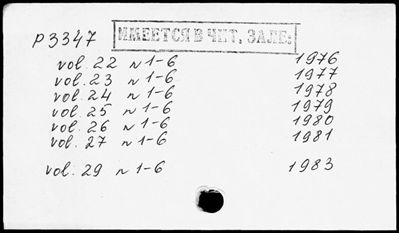 P3347 ИМЕЕТСЯ В ЧИТ. ЗАЛЕ:
vol. 22 n 1-6 1976
vol. 23 n 1-6 1977
vol. 24 n 1-6 1978
vol. 25 n 1-6 1979
vol. 26 n 1-6 1980
vol. 27 n 1-6 1981
vol. 29 n 1-6 1983